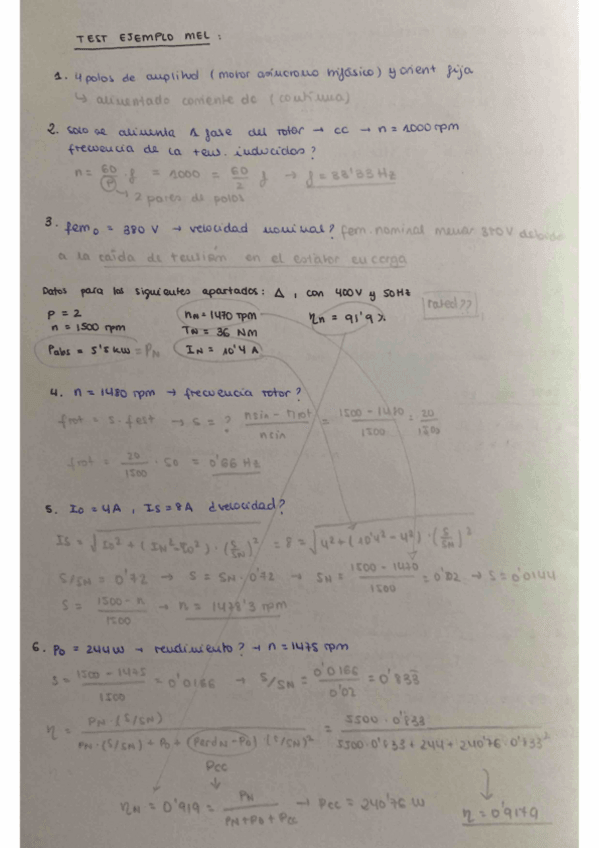 TEST EJEMPLO MEL :
1. 4 polos de amplitud (motor asíncrono trifásico) y orient fija
↳ alimentado corriente dc (continua)
2. Solo se alimenta 1 fase del rotor → cc → n = 1000 rpm
frecuencia de la tens. inducidas?
n = 60/P · f = 1000 = 60/2 f → f = 33'33 Hz
↳ 2 pares de polos
3. fem₀ = 380 V → velocidad nominal? fem. nominal menor 380 V debido
a la caída de tensión en el estator en carga
Datos para los siguientes apartados: Δ, con 400V y 50Hz
P = 2 nN = 1470 rpm ηn = 91'9 % rated??
n = 1500 rpm TN = 36 NM
Pabs = 5'5 kW = PN IN = 10'4 A
4. n = 1480 rpm → frecuencia rotor?
frot = s · fest → s = ? (nsin - nrot)/nsin = (1500 - 1480)/1500 = 20/1500
frot = 20/1500 · 50 = 0'66 Hz
5. I0 = 4A, Is = 8A ¿velocidad?
Is = √(I0² + (IN² - I0²) · (S/SN)²) = 8 = √(4² + (10'4² - 4²) · (S/SN)²)
S/SN = 0'72 → S = SN · 0'72 → SN = (1500 - 1470)/1500 = 0'02 → S = 0'0144
S = (1500 - n)/1500 → n = 1478'3 rpm
6. P0 = 244 W → rendimiento? → n = 1475 rpm
S = (1500 - 1475)/1500 = 0'0166 → S/SN = 0'0166/0'02 = 0'833
η = PN · (S/SN) / (PN · (S/SN) + P0 + (PerdN - P0) · (S/SN)²) = 5500 · 0'833 / (5500 · 0'833 + 244 + 240'76 · 0'833²)
Pcc
ηN = 0'919 = PN/(PN + P0 + Pcc) → Pcc = 240'76 W η = 0'9179